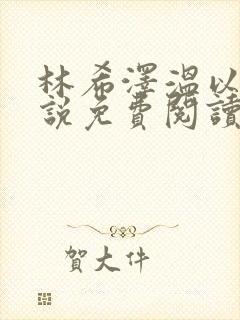 林希澤溫以
說免費閱讀
賀大件